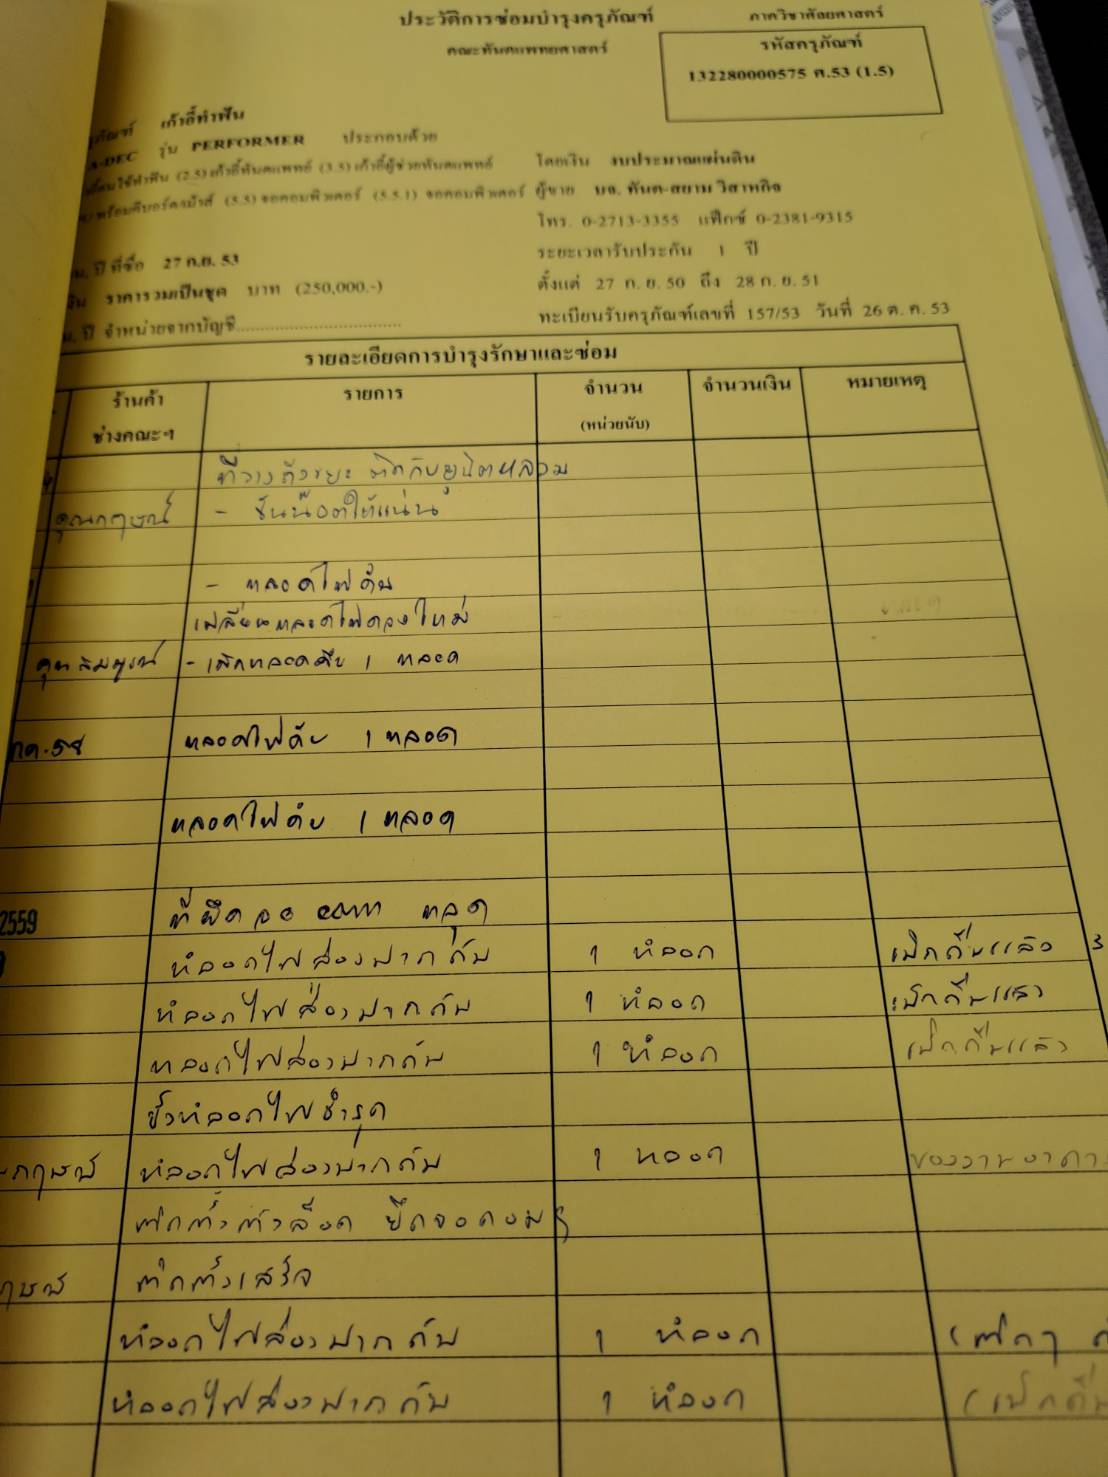 ประวัติการซ่อมบำรุงครุภัณฑ์ ภาควิชาศัลยศาสตร์
คณะทันตแพทยศาสตร์ รหัสครุภัณฑ์
132280000575 ศ.53 (1.5)
เก้าอี้ทำฟัน
A-DEC รุ่น PERFORMER ประกอบด้วย
(2.5) เก้าอี้ทันตแพทย์ (3.5) เก้าอี้ผู้ช่วยทันตแพทย์ โดยเงิน งบประมาณแผ่นดิน
(5.5) จอคอมพิวเตอร์ (5.5.1) จอคอมพิวเตอร์ ผู้ขาย บจ. ทันต-สยาม วิสาหกิจ
โทร. 0-2713-3355 แฟ็กซ์ 0-2381-9315
ระยะเวลารับประกัน 1 ปี
ปี ที่ซื้อ 27 ก.ย. 53
ตั้งแต่ 27 ก.ย. 50 ถึง 28 ก.ย. 51
ราคารวมเป็นชุด บาท (250,000.-)
ทะเบียนรับครุภัณฑ์เลขที่ 157/53 วันที่ 26 ต.ค. 53
ปี จำหน่ายจากบัญชี
รายละเอียดการบำรุงรักษาและซ่อม
ร้านค้า รายการ จำนวน จำนวนเงิน หมายเหตุ
ช่างคณะฯ (หน่วยนับ)
ที่วางถังขยะ ติดกับยูนิตหลวม
คุณกฤษณ์ - ขันน๊อตให้แน่น
- หลอดไฟดับ
เปลี่ยนหลอดไฟดวงใหม่
คุณสมบูรณ์ - เบิกหลอดคืน 1 หลอด
หลอดไฟดับ 1 หลอด
หลอดไฟดับ 1 หลอด
2559 ที่ยึดจอ com หลุด
หลอดไฟส่องปากดับ 1 หลอด เบิกคืนแล้ว
หลอดไฟส่องปากดับ 1 หลอด เบิกคืนแล้ว
หลอดไฟส่องปากดับ 1 หลอด เบิกคืนแล้ว
ขั้วหลอดไฟชำรุด
หลอดไฟส่องปากดับ 1 หลอด ของงานอาคาร
ติดตั้งตัวล็อค ยึดจอคอมฯ
ติดตั้งเสร็จ
หลอดไฟส่องปากดับ 1 หลอด
หลอดไฟส่องปากดับ 1 หลอด